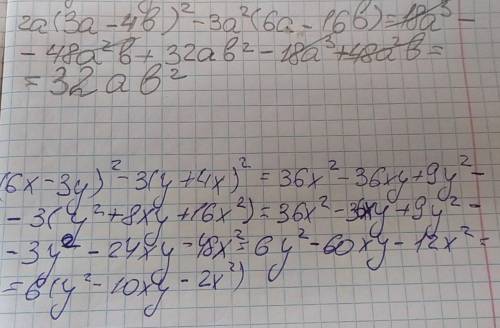 2a(3a-4b)²-3a²(6a-16b)=18a³-
-48a²b+32ab²-18a³+48a²b=
=32ab²
(6x-3y)²-3(y+4x)²=36x²-36xy+9y²-
-3(y²+8xy+16x²)=36x²-36xy+9y²-
-3y²-24xy-48x²=6y²-60xy-12x²=
=6(y²-10xy-2x²)